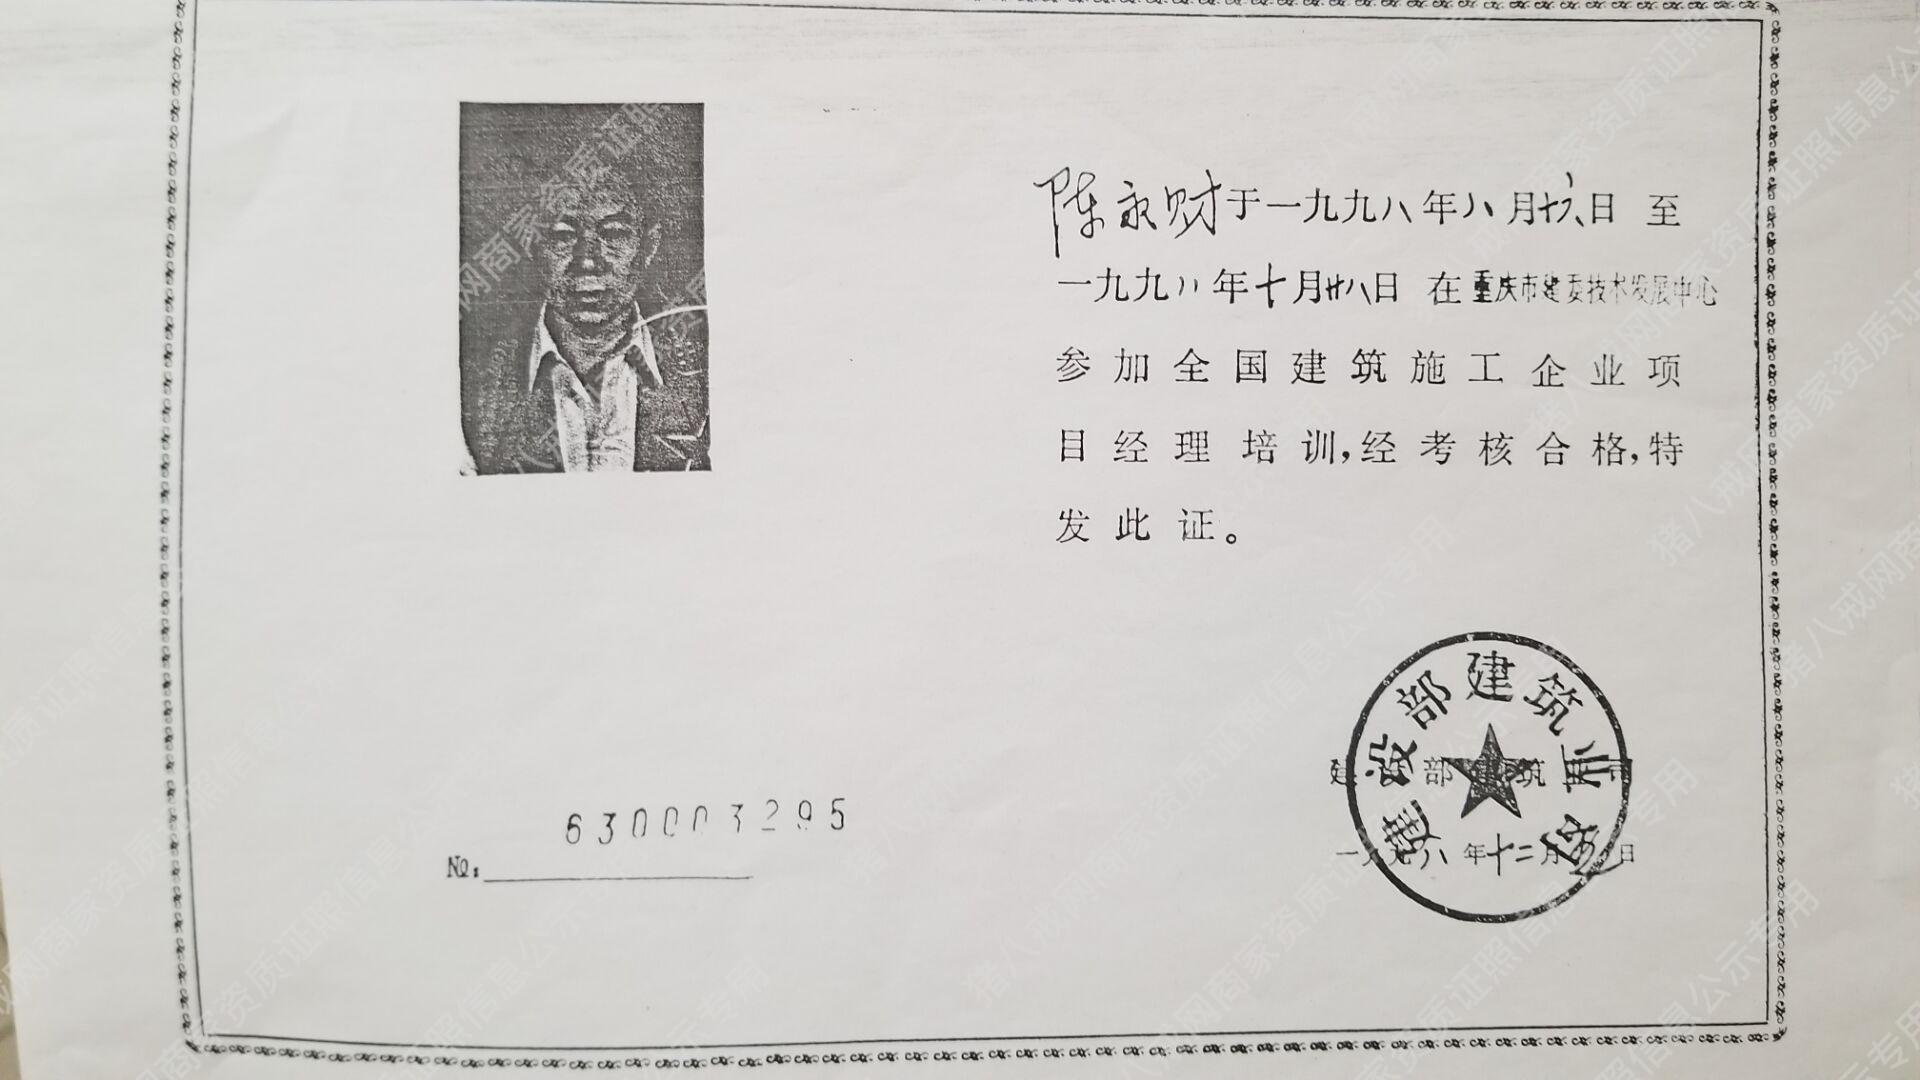 陈永财于一九九八年八月十六日 至
一九九八年十月廿八日 在重庆市建委技术发展中心
参加全国建筑施工企业项
目经理培训,经考核合格,特
发此证。
建设部建筑业司
一九九八年十二月 日
630003295
№:
猪八戒网商家资质证照信息公示专用